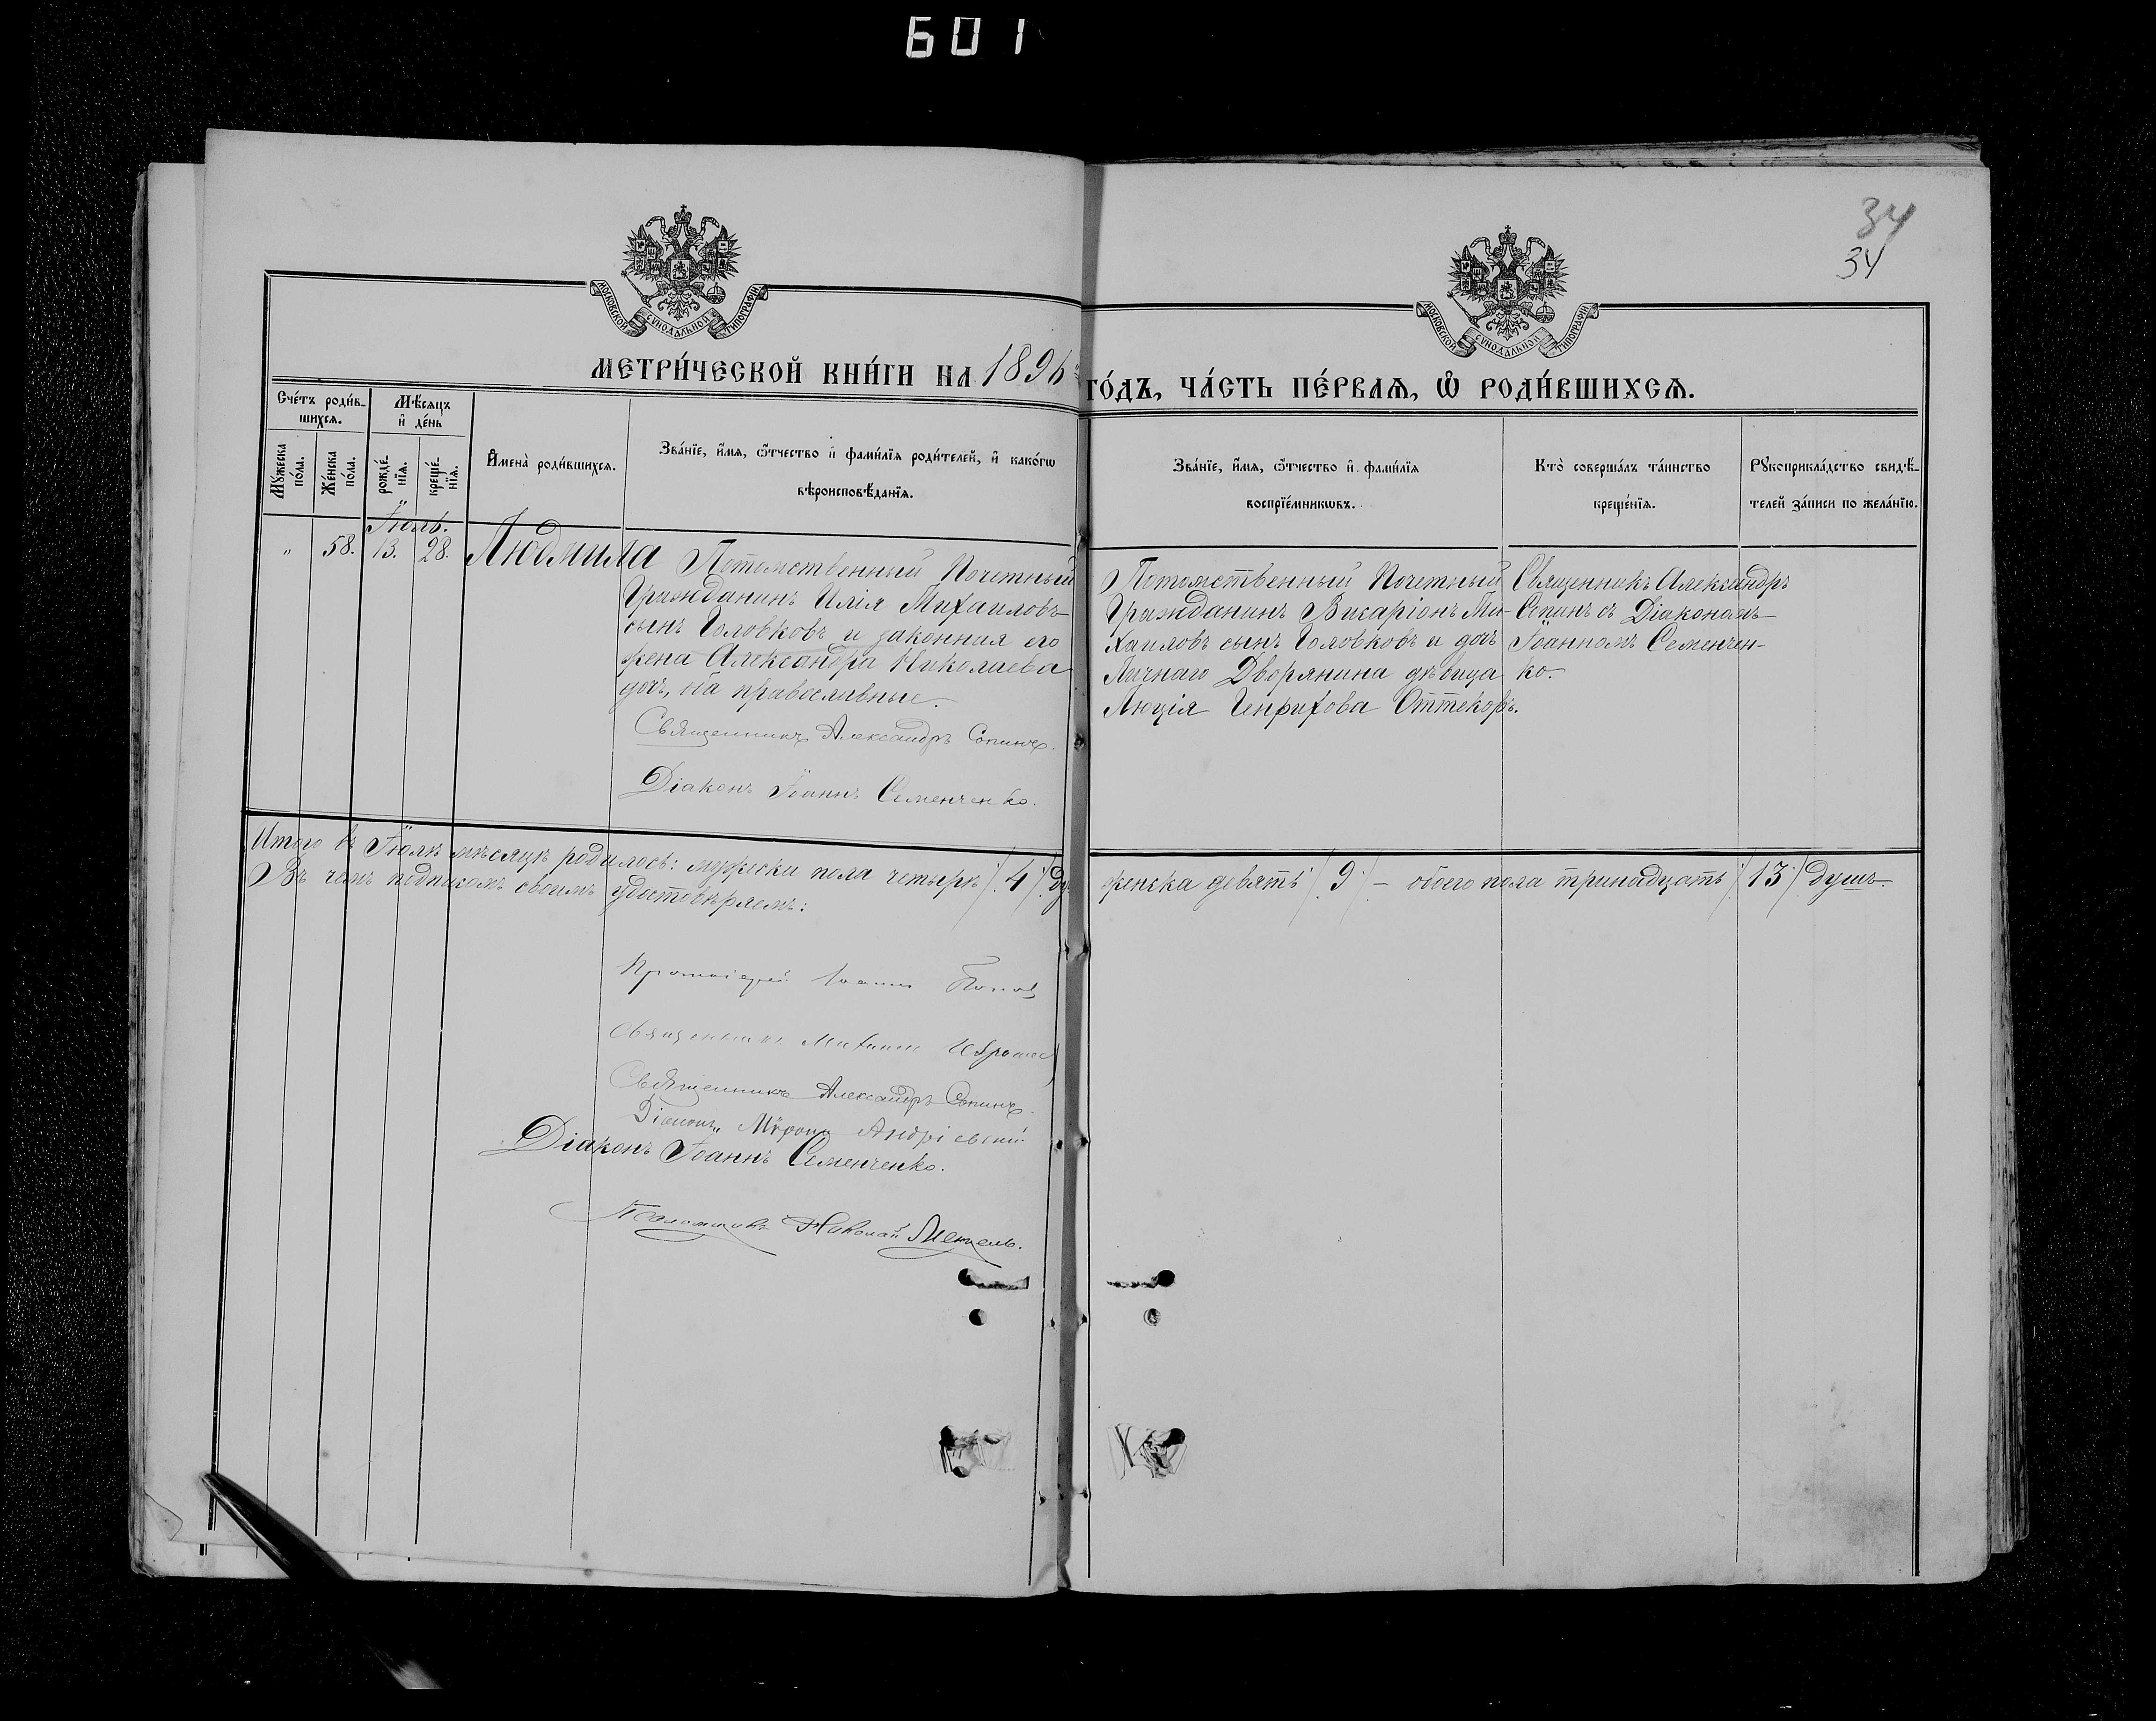 601
34
34
МОСКОВСКОЙ СѴНОДАЛЬНОЙ ТИПОГРАФІИ
МОСКОВСКОЙ СѴНОДАЛЬНОЙ ТИПОГРАФІИ
МЕТРИ́ЧЕСКОЙ КНИ́ГИ НА 1896 ГО́ДЪ, ЧА́СТЬ ПЕ́РВАѦ, Ѡ҆ РОДИ́ВШИХСѦ.
Сче́тъ роди́в-
шихсѧ.
Мꙋ́жеска
по́ла.
Же́нска
по́ла.
Мѣ́сяцъ
и҆ де́нь
рожде́-
нїѧ.
креще́-
нїѧ.
И҆мена̀ роди́вшихсѧ.
Зва́нїе, и҆́мѧ, ѻ҆́тчество и҆ фами́лїѧ роди́телей, и҆ како́гѡ
вѣроисповѣ́данїѧ.
Зва́нїе, и҆́мѧ, ѻ҆́тчество и҆ фами́лїѧ
воспрїе́мникѡвъ.
Кто̀ соверша́лъ та́инство
креще́нїѧ.
Рꙋкоприкла́дство свидѣ́-
телей за́писи по жела́нїю.
Іюль.
" 58. 13. 28. Людмила
Потомственный Почетный
Гражданинъ Илія Михаиловъ
сынъ Головковъ и законная его
жена Александра Николаева
доч, оба православные.
Священникъ Александръ Сопинъ.
Діаконъ Іоаннъ Семенченко.
Потомственный Почетный
Гражданинъ Викаріонъ Ми-
хаиловъ сынъ Головковъ и дочь
Личнаго Дворянина дѣвица
Люція Генрихова Оттекоръ.
Священникъ Александръ
Сопинъ съ Діакономъ
Іоанномъ Семенчен-
ко.
Итого въ Іюлѣ мѣсяцѣ родилось: мужески пола четыре /4/ женска девять /9/ – обоего пола тринадцать /13/ душъ.
Въ чемъ подписомъ своимъ удостовѣряемъ:
Протоіерей Іоаннъ Попов
Священникъ Михаилъ
Священникъ Александръ Сопинъ.
Діаконъ Мѵронъ Андріевскій
Діаконъ Іоаннъ Семенченко.
Псаломщикъ Николай